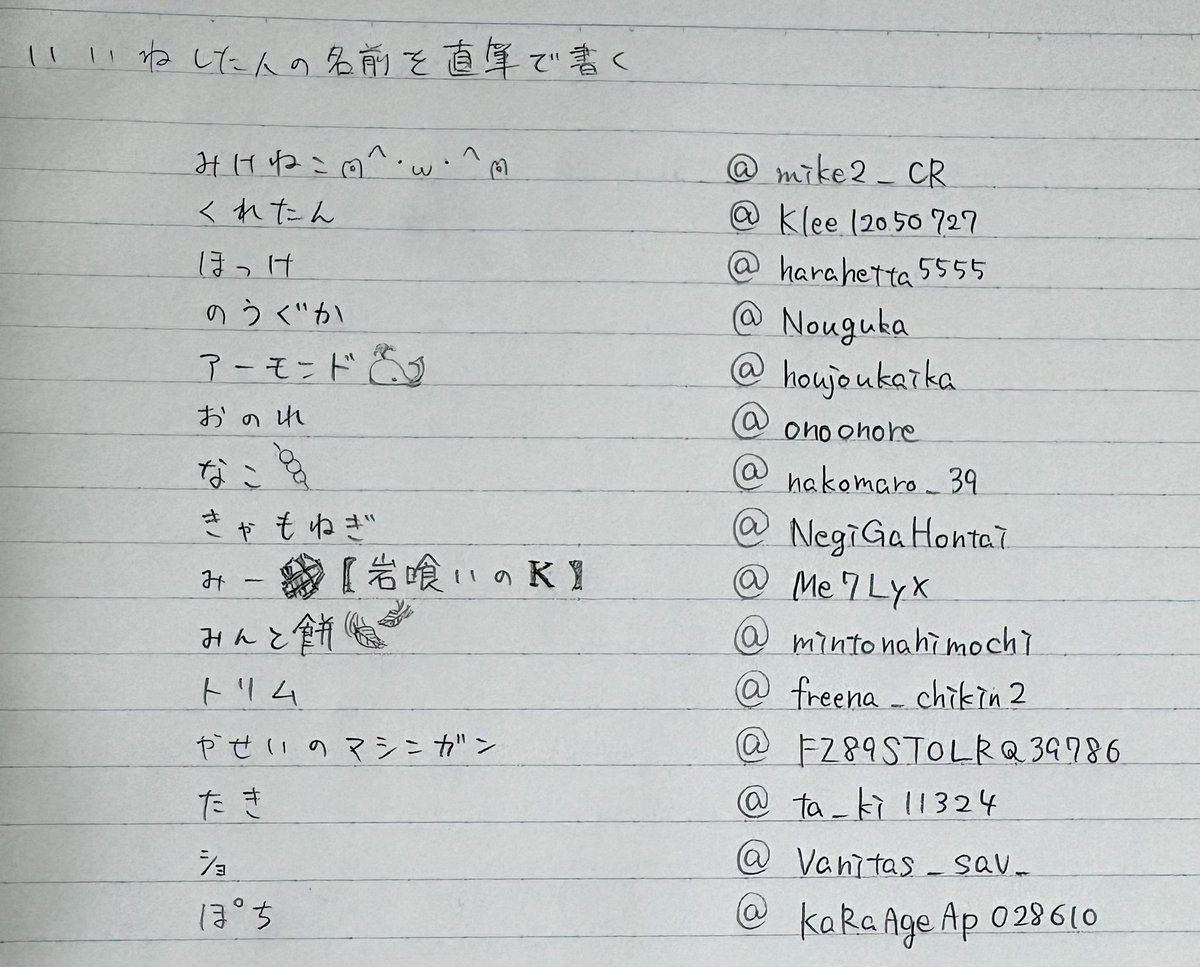 いいねした人の名前を直筆で書く
みけねこฅ^・ω・^ฅ @mike2_CR
くれたん @Klee12050727
ほっけ @harahetta5555
のうぐか @Nouguka
アーモンド @houjoukaika
おのれ @onoonore
なこ @nakomaro_39
きゃもねぎ @NegiGaHontai
みー【岩喰いのK】 @Me7LyX
みんと餅 @mintonahimochi
トリム @freena_chikin2
やせいのマシンガン @FZ89STOLRQ39786
たき @ta_ki11324
ショ @Vanitas_sav_
ぽち @kaRaAgeAp028610